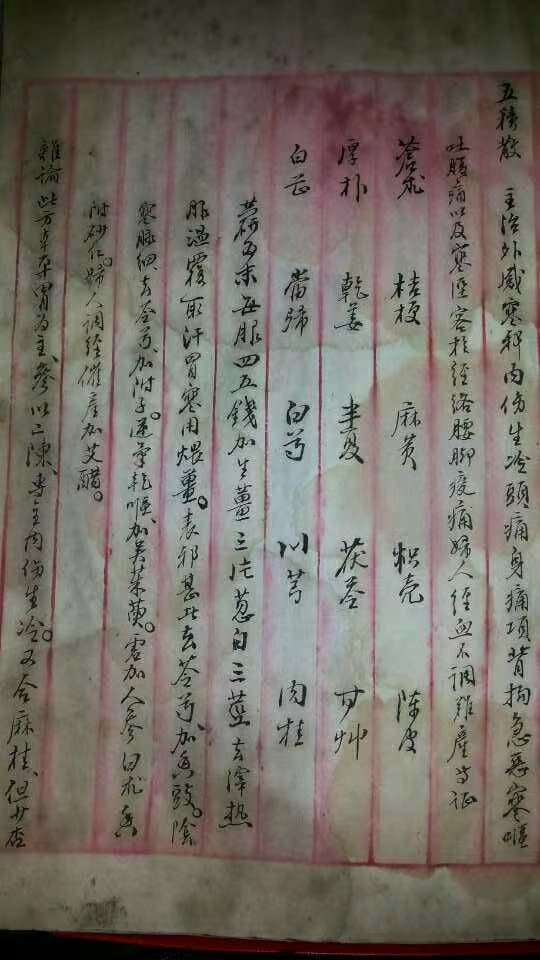 五積散 主治外感寒邪内伤生冷頭痛身痛項背拘急惡寒嘔
吐腹痛以及寒溼客於經絡腰脚痠痛婦人經血不調難產等证
蒼朮 桔梗 麻黄 枳壳 陈皮
厚朴 乾姜 半夏 茯苓 甘艸
白芷 當歸 白芍 川芎 肉桂
末每服四五錢加生薑三片葱白三莖去滓热
服溫覆取汗胃寒用煨薑。表邪甚比去芍加豉。陰
寒脉细去芩芍加附子。逆氣乾嘔加吴茱萸。虚加人参白朮
附砂仁。婦人調經催產加艾醋。
雜論 此方平胃为主、參以二陳、専主内伤生冷。又合麻桂、但少杏